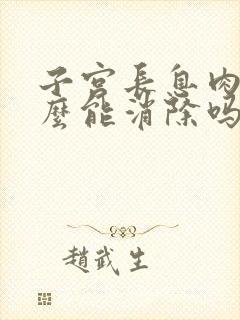 子宫長息肉
麽能消除吗
趙武生